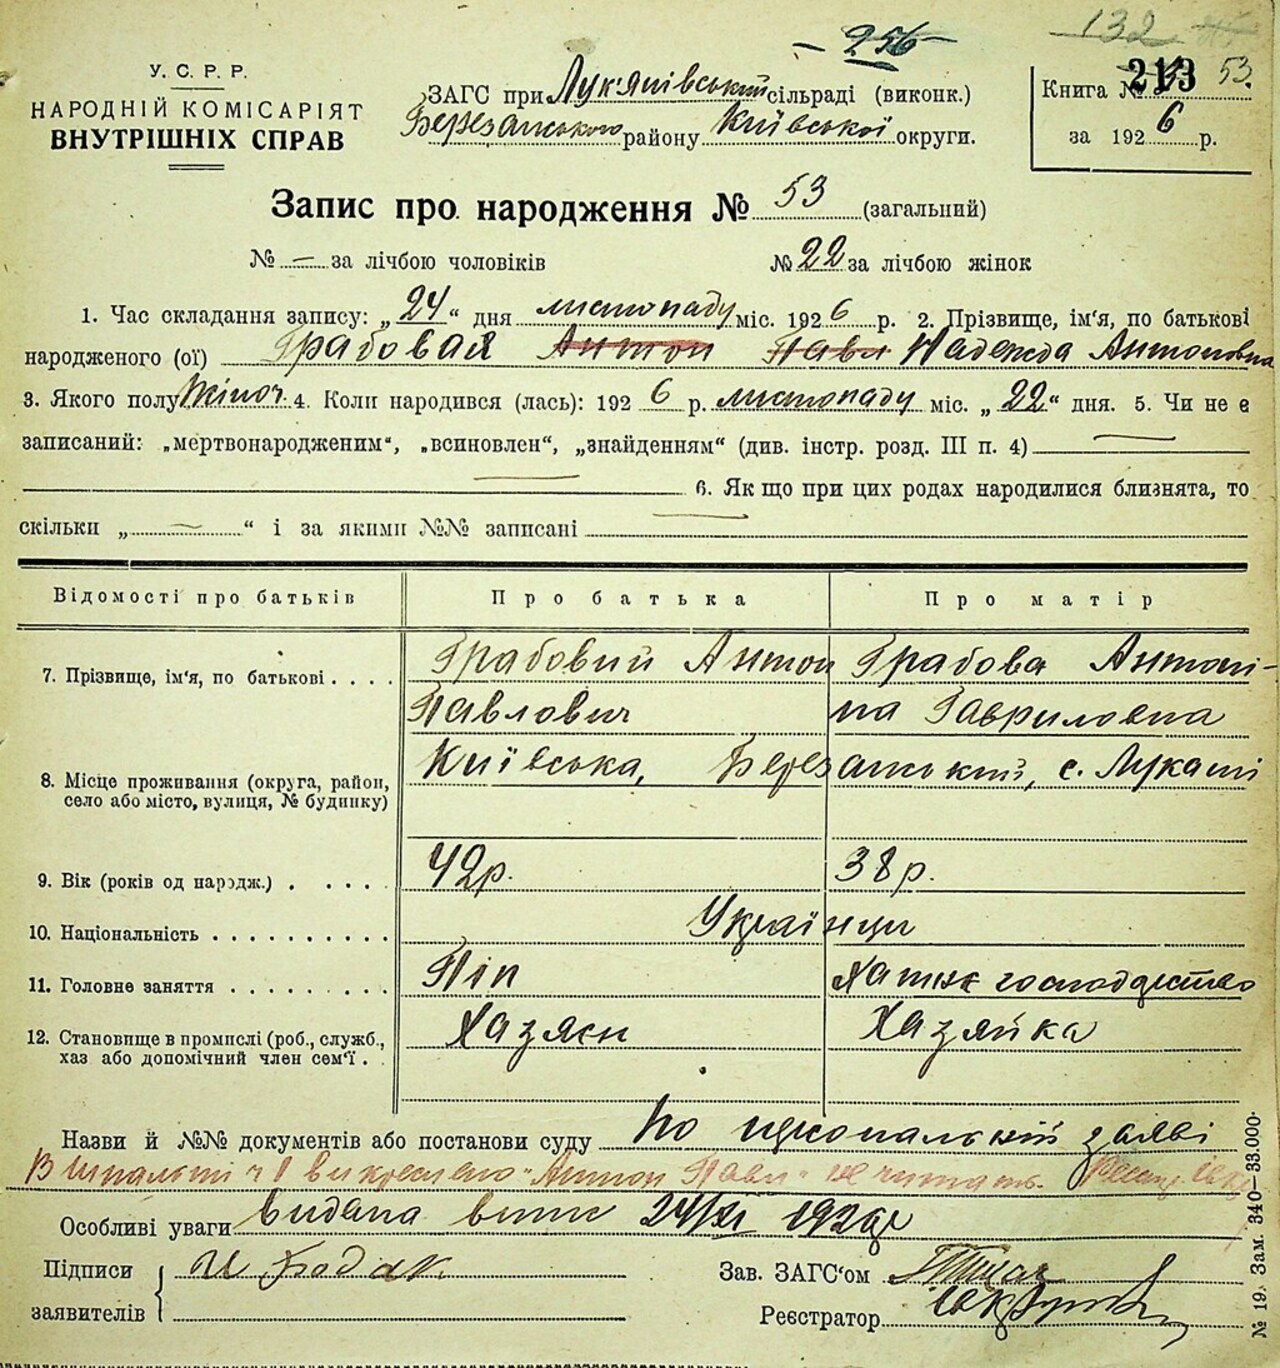 - 256 -
132
У. С. Р. Р.
НАРОДНІЙ КОМІСАРІЯТ
ВНУТРІШНІХ СПРАВ
ЗАГС при Лук'янівській сільраді (виконк.)
Березанського району Київської округи.
Книга № 213 53.
за 1926 р.
Запис про народження № 53 (загальний)
№ — за лічбою чоловіків № 22 за лічбою жінок
1. Час складання запису: „24“ дня листопаду міс. 1926 р. 2. Прізвище, ім'я, по батькові
народженого (ої) Грабовая Антон Павл Надежда Антоновна
3. Якого полу жіноч. 4. Коли народився (лась): 1926 р. листопаду міс. „22“ дня. 5. Чи не є
записаний: „мертвонародженим“, „всиновлен“, „знайденням“ (див. інстр. розд. III п. 4) —
— 6. Як що при цих родах народилися близнята, то
скільки „—“ і за якими №№ записані —
Відомості про батьків Про батька Про матір
7. Прізвище, ім'я, по батькові . . . . Грабовий Антон Грабова Антоні-
Павлович на Гавриловна
8. Місце проживання (округа, район, Київська, Березанський, с. Лукаші
село або місто, вулиця, № будинку)
9. Вік (років од народж.) . . . . . 42р. 38р.
10. Національність . . . . . . . . . . Українци
11. Головне заняття . . . . . . . . . Піп Хатнє
12. Становище в промислі (роб., служб., Хазяєн Хазяйка
хаз або допомічний член сем'ї . .
Назви й №№ документів або постанови суду По заяві
В ч 1 викреслено „Антон Павл“ не читать.
Особливі уваги Видана випис 24/XI 1926р
Підписи
заявителів
Зав. ЗАГС'ом
Реєстратор
№ 19. Зам. 340—33.000.